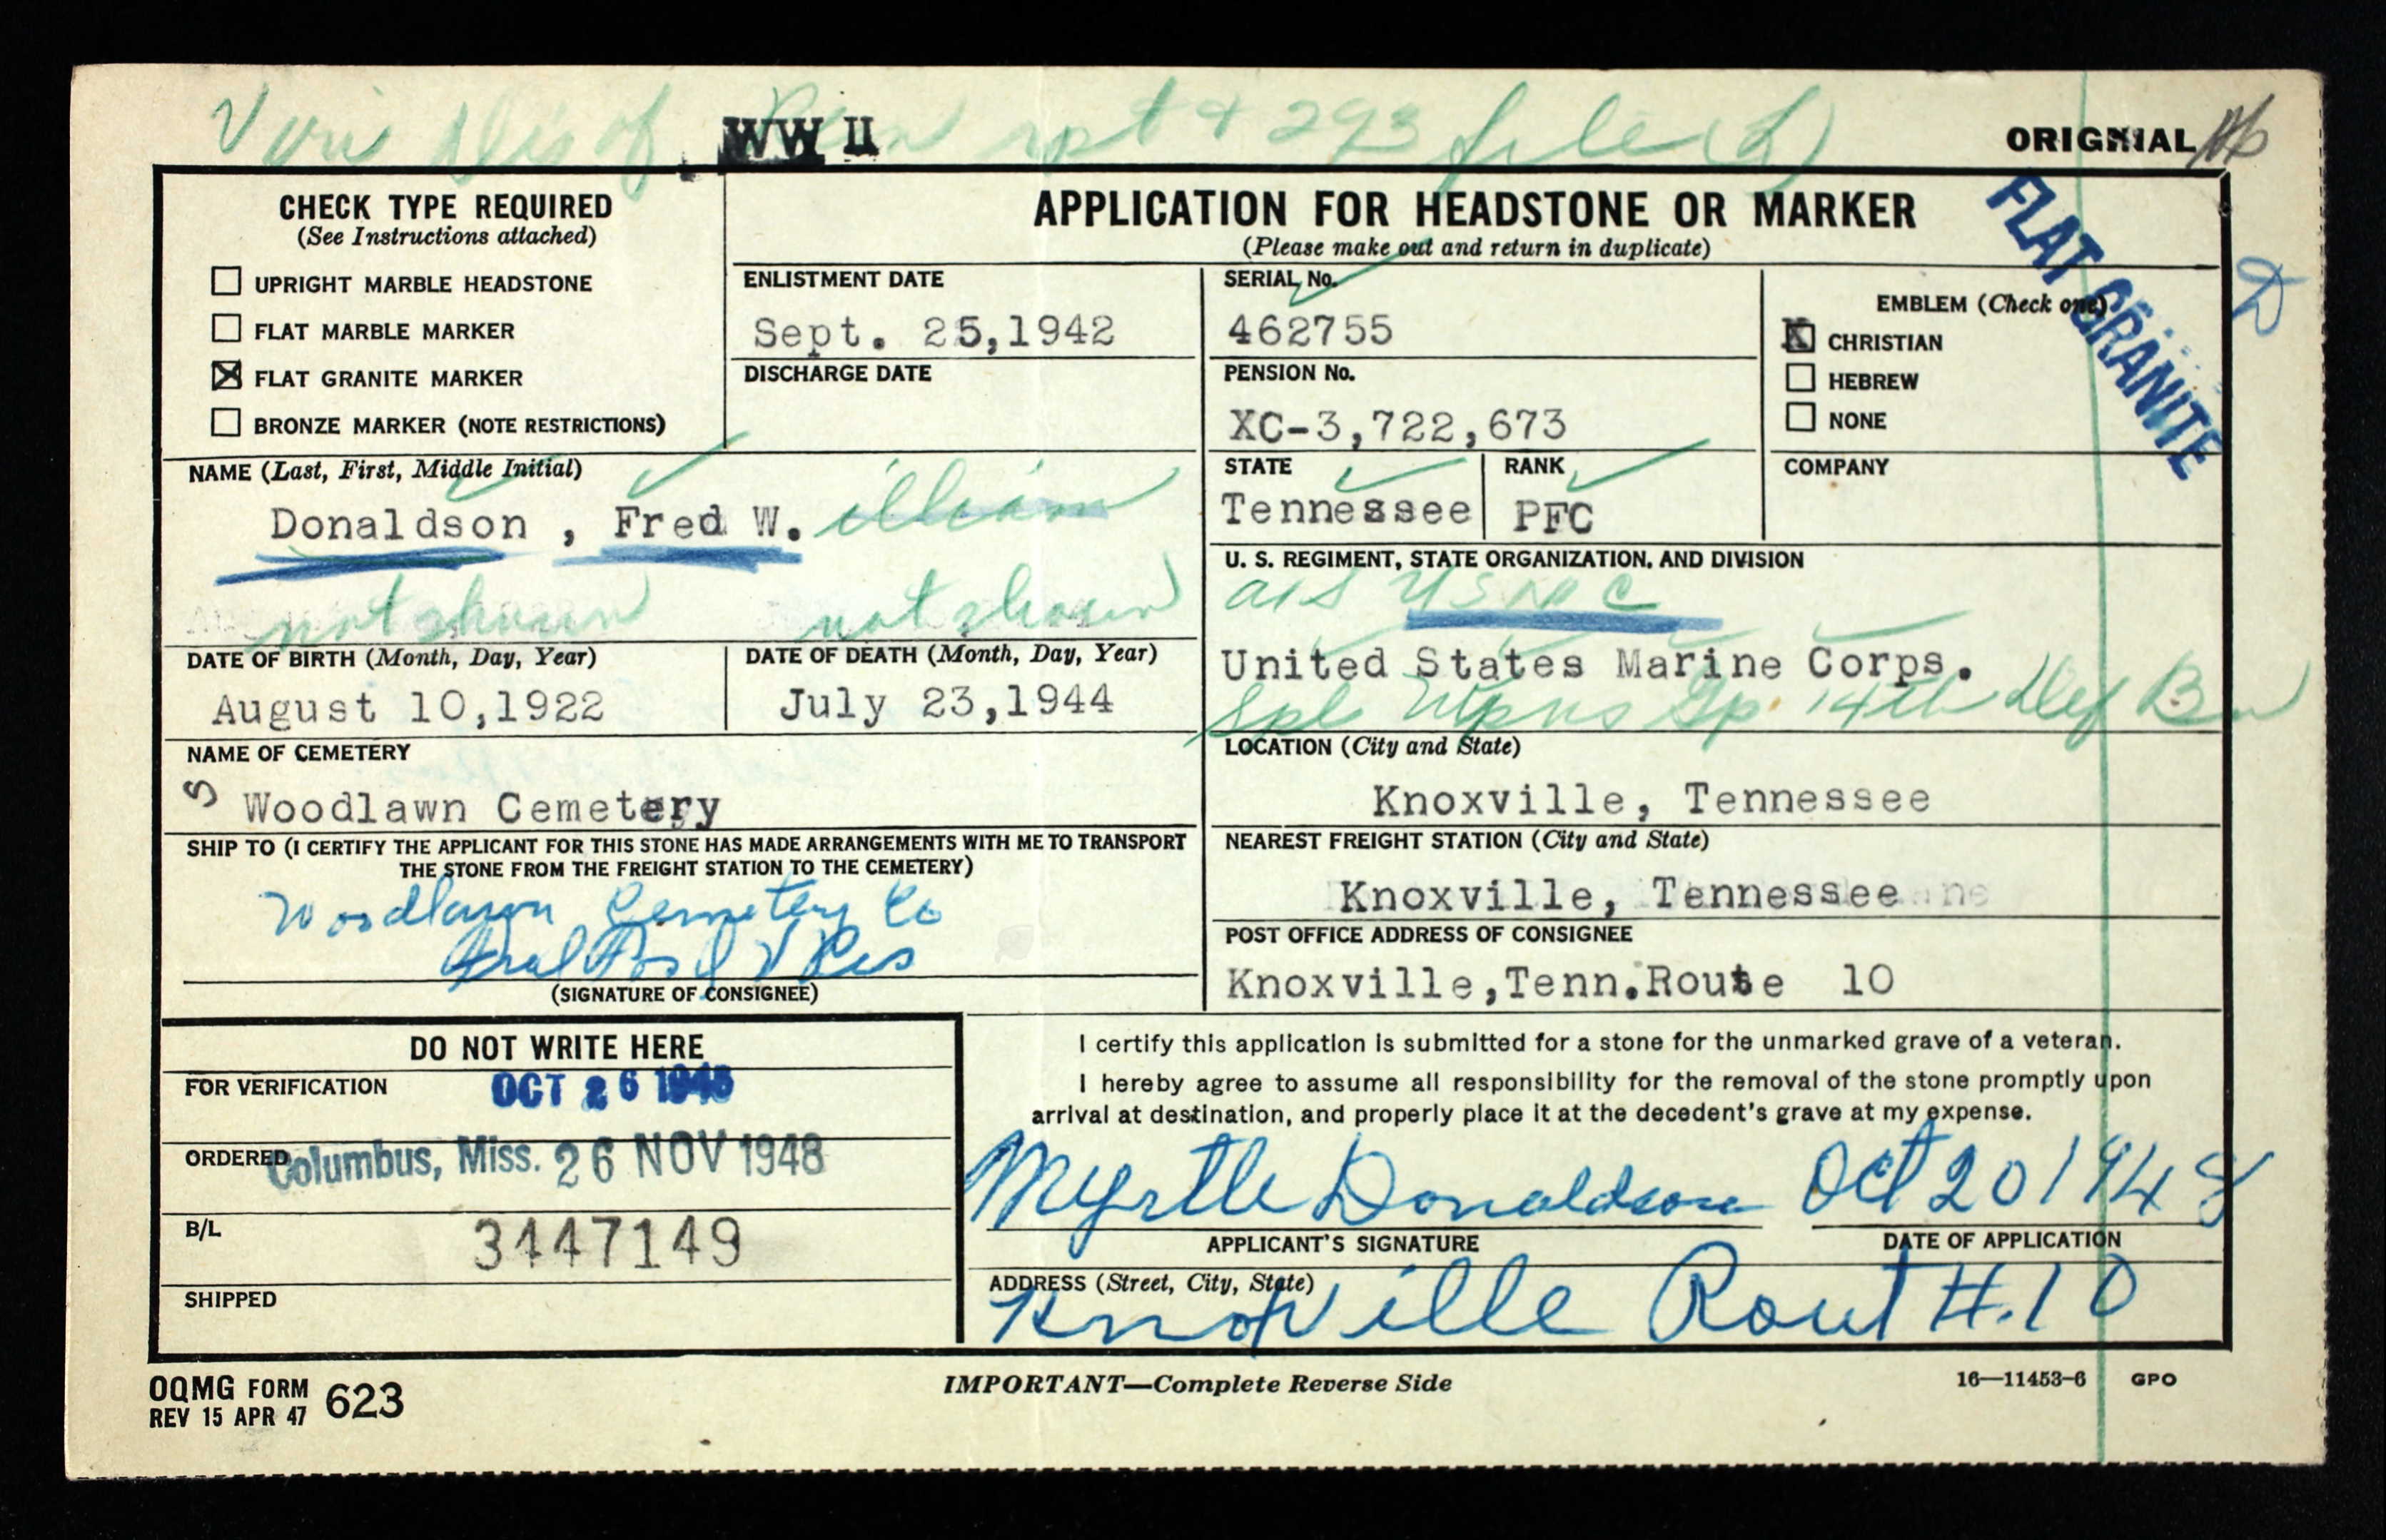 Veri Dis of rpt & 293 file (L)
WW II
ORIGINAL
FLAT GRANITE
D
CHECK TYPE REQUIRED
(See Instructions attached)
UPRIGHT MARBLE HEADSTONE
FLAT MARBLE MARKER
X FLAT GRANITE MARKER
BRONZE MARKER (NOTE RESTRICTIONS)
APPLICATION FOR HEADSTONE OR MARKER
(Please make out and return in duplicate)
ENLISTMENT DATE
Sept. 25,1942
DISCHARGE DATE
SERIAL No.
462755
PENSION No.
XC-3,722,673
EMBLEM (Check one)
X CHRISTIAN
HEBREW
NONE
NAME (Last, First, Middle Initial)
Donaldson , Fred W. illiam
not shown not shown
STATE
Tennessee
RANK
PFC
COMPANY
U. S. REGIMENT, STATE ORGANIZATION, AND DIVISION
USMC
United States Marine Corps.
Spl Wpns Gp 14th Def Bn
DATE OF BIRTH (Month, Day, Year)
August 10,1922
DATE OF DEATH (Month, Day, Year)
July 23,1944
NAME OF CEMETERY
S Woodlawn Cemetery
LOCATION (City and State)
Knoxville, Tennessee
SHIP TO (I CERTIFY THE APPLICANT FOR THIS STONE HAS MADE ARRANGEMENTS WITH ME TO TRANSPORT
THE STONE FROM THE FREIGHT STATION TO THE CEMETERY)
Woodlawn Cemetery Co
V Pres
(SIGNATURE OF CONSIGNEE)
NEAREST FREIGHT STATION (City and State)
Knoxville, Tennessee
POST OFFICE ADDRESS OF CONSIGNEE
Knoxville,Tenn.Route 10
DO NOT WRITE HERE
FOR VERIFICATION
OCT 26 1948
ORDERED
Columbus, Miss. 26 NOV 1948
B/L
3447149
SHIPPED
I certify this application is submitted for a stone for the unmarked grave of a veteran.
I hereby agree to assume all responsibility for the removal of the stone promptly upon
arrival at destination, and properly place it at the decedent's grave at my expense.
Myrtle Donaldson Oct 20 1948
APPLICANT'S SIGNATURE
DATE OF APPLICATION
ADDRESS (Street, City, State)
Knoxville Rout #.10
OQMG FORM 623
REV 15 APR 47
IMPORTANT—Complete Reverse Side
16—11453-6 GPO